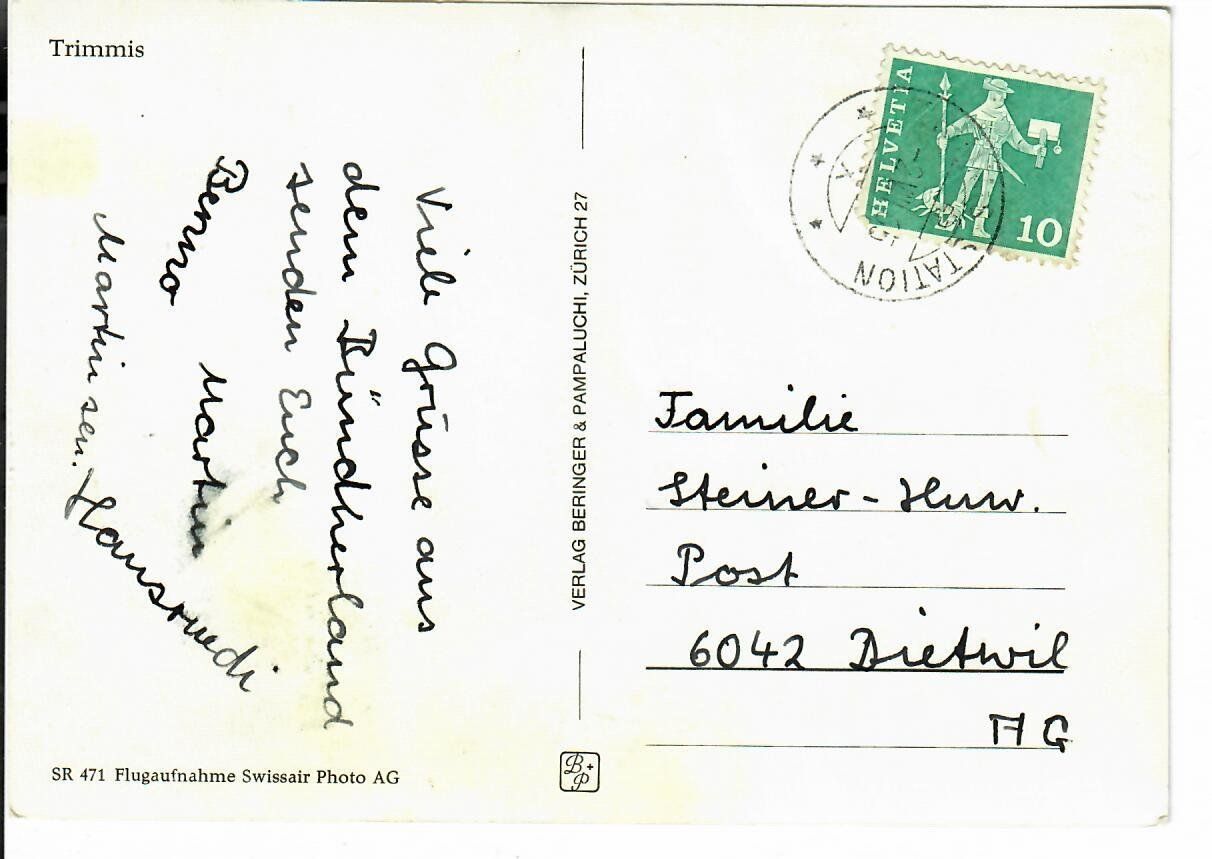 Trimmis
Viele Grüsse aus
dem Bündnerland
senden Euch
Benno Martin
Martin sen. Hansruedi
SR 471 Flugaufnahme Swissair Photo AG
VERLAG BERINGER & PAMPALUCHI, ZÜRICH 27
B+P
HELVETIA
10
STATION
Familie
Steiner-Huw.
Post
6042 Dietwil
AG